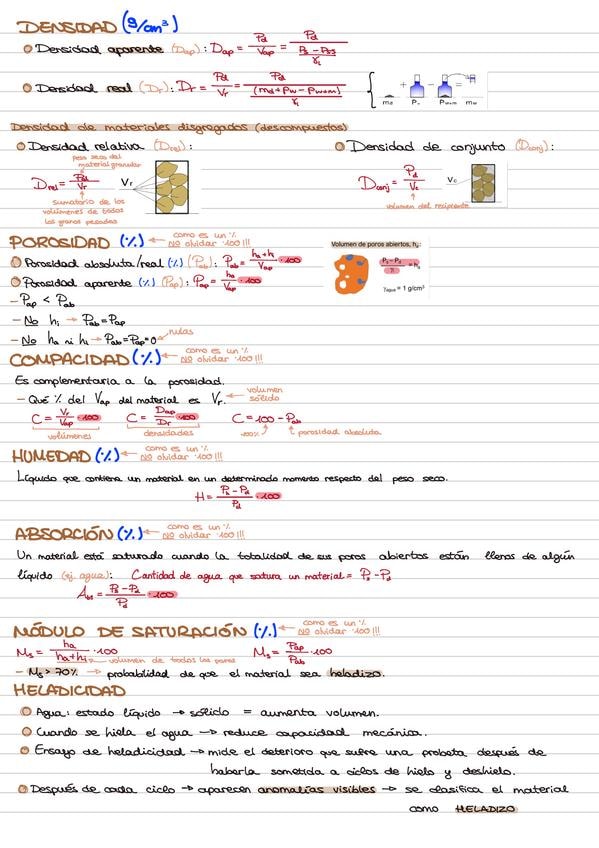 DENSIDAD (g/cm³)
Densidad aparente (Dap): Dap = Pd / Vap = Pd / ((Ps - Pss) / γL)
Densidad real (Dr): Dr = Pd / Vr = Pd / ((md + Pw - Pw+m) / γL)
md + Pw - Pw+m mw
Densidad de materiales disgregados (descompuestos)
Densidad relativa (Drel):
peso seco del
material granular
Drel = Pd / Vr
Vr
sumatorio de los
volúmenes de todos
los granos pesados
Densidad de conjunto (Dconj):
Dconj = Pd / Vc
Vc
volumen del recipiente
POROSIDAD (%) ← como es un %
NO olvidar ·100!!!
Porosidad absoluta/real (%) (Pab): Pab = (ha + hi) / Vap · 100
Porosidad aparente (%) (Pap): Pap = ha / Vap · 100
Volumen de poros abiertos, ha:
(Ps - Pd) / γL = ha
γagua = 1 g/cm³
- Pap < Pab
- No hi → Pab = Pap
- No ha ni hi → Pab = Pap = 0 nulas
COMPACIDAD (%) ← como es un %
NO olvidar ·100!!!
Es complementaria a la porosidad.
- Qué % del Vap del material es Vr. ← volumen
sólido
C = Vr / Vap · 100 C = Dap / Dr · 100 C = 100 - Pab
volúmenes densidades 100% porosidad absoluta
HUMEDAD (%) ← como es un %
NO olvidar ·100!!!
Líquido que contiene un material en un determinado momento respecto del peso seco.
H = (Ph - Pd) / Pd · 100
ABSORCIÓN (%) ← como es un %
NO olvidar ·100!!!
Un material está saturado cuando la totalidad de sus poros abiertos están llenos de algún
líquido (ej. agua): Cantidad de agua que satura un material = Ps - Pd
Abs = (Ps - Pd) / Pd · 100
MÓDULO DE SATURACIÓN (%) ← como es un %
NO olvidar ·100!!!
Ms = ha / (ha + hi) · 100 Ms = Pap / Pab · 100
volumen de todos los poros
- Ms > 70% → probabilidad de que el material sea heladizo.
HELADICIDAD
Agua: estado líquido → sólido = aumenta volumen.
Cuando se hiela el agua → reduce capacidad mecánica.
Ensayo de heladicidad → mide el deterioro que sufre una probeta después de
haberla sometida a ciclos de hielo y deshielo.
Después de cada ciclo → aparecen anomalías visibles → se clasifica el material
como HELADIZO